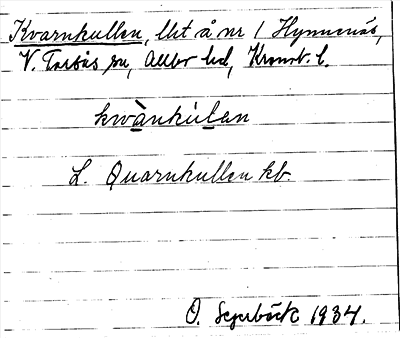 Kvarnkullen, llt å nr 1 Hymmenäs,
V. Torsås sn, Allbo hd, Kronob. l.
kwànkúlan
L. Quarnkullen kb.
O. Segerbäck 1934.